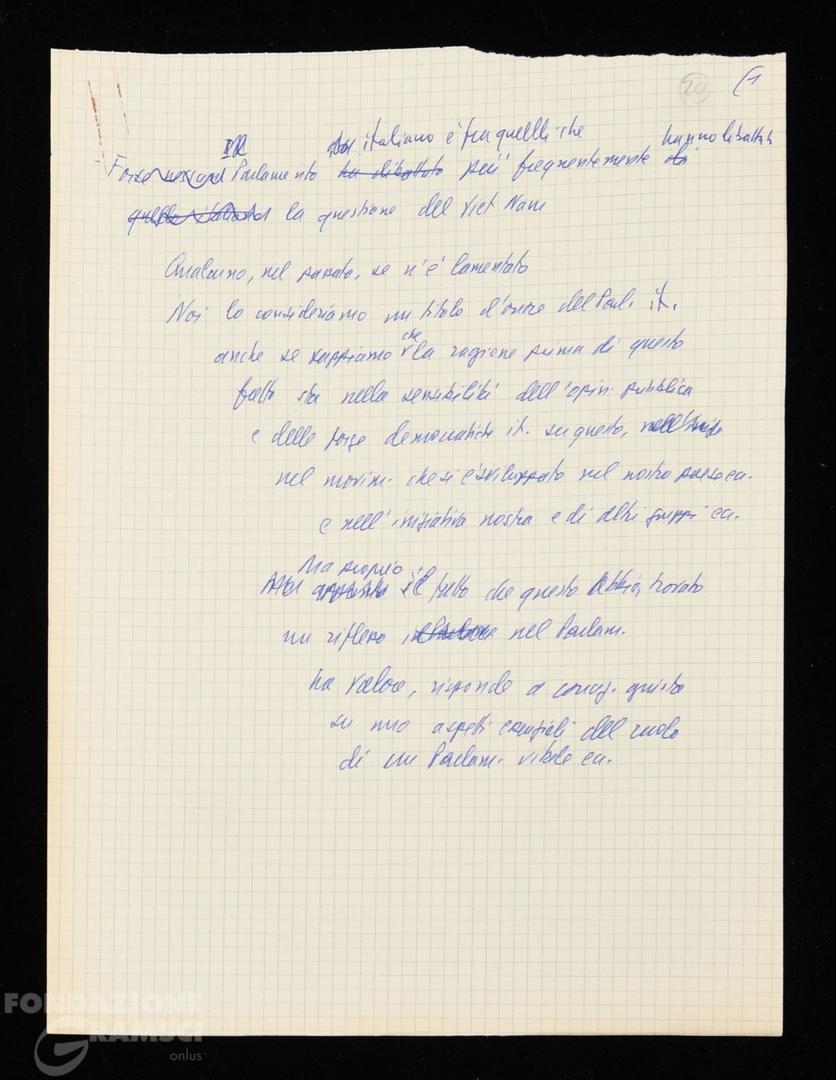 70 (1
Il italiano è tra quelli che hanno dibattuto
Forse nessun Parlamento ha dibattuto più frequentemente di
quello italiano la questione del Viet Nam
Qualcuno, nel passato, se n'è lamentato
Noi lo consideriamo un titolo d'onore del Parl. it.
anche se sappiamo che la ragione prima di questo
fatto sta nella sensibilità dell'opin. pubblica
e delle forze democratiche it. su questo,
nel movim. che si è sviluppato nel nostro paese ecc.
e nell'iniziativa nostra e di altri gruppi ecc.
Ma proprio
il fatto che questo abbia trovato
un riflesso nel Parlam.
ha valore, risponde a concez. giusta
su uno aspetti essenziali del ruolo
di un Parlam. vitale ecc.
FONDAZIONE
GRAMSCI
onlus